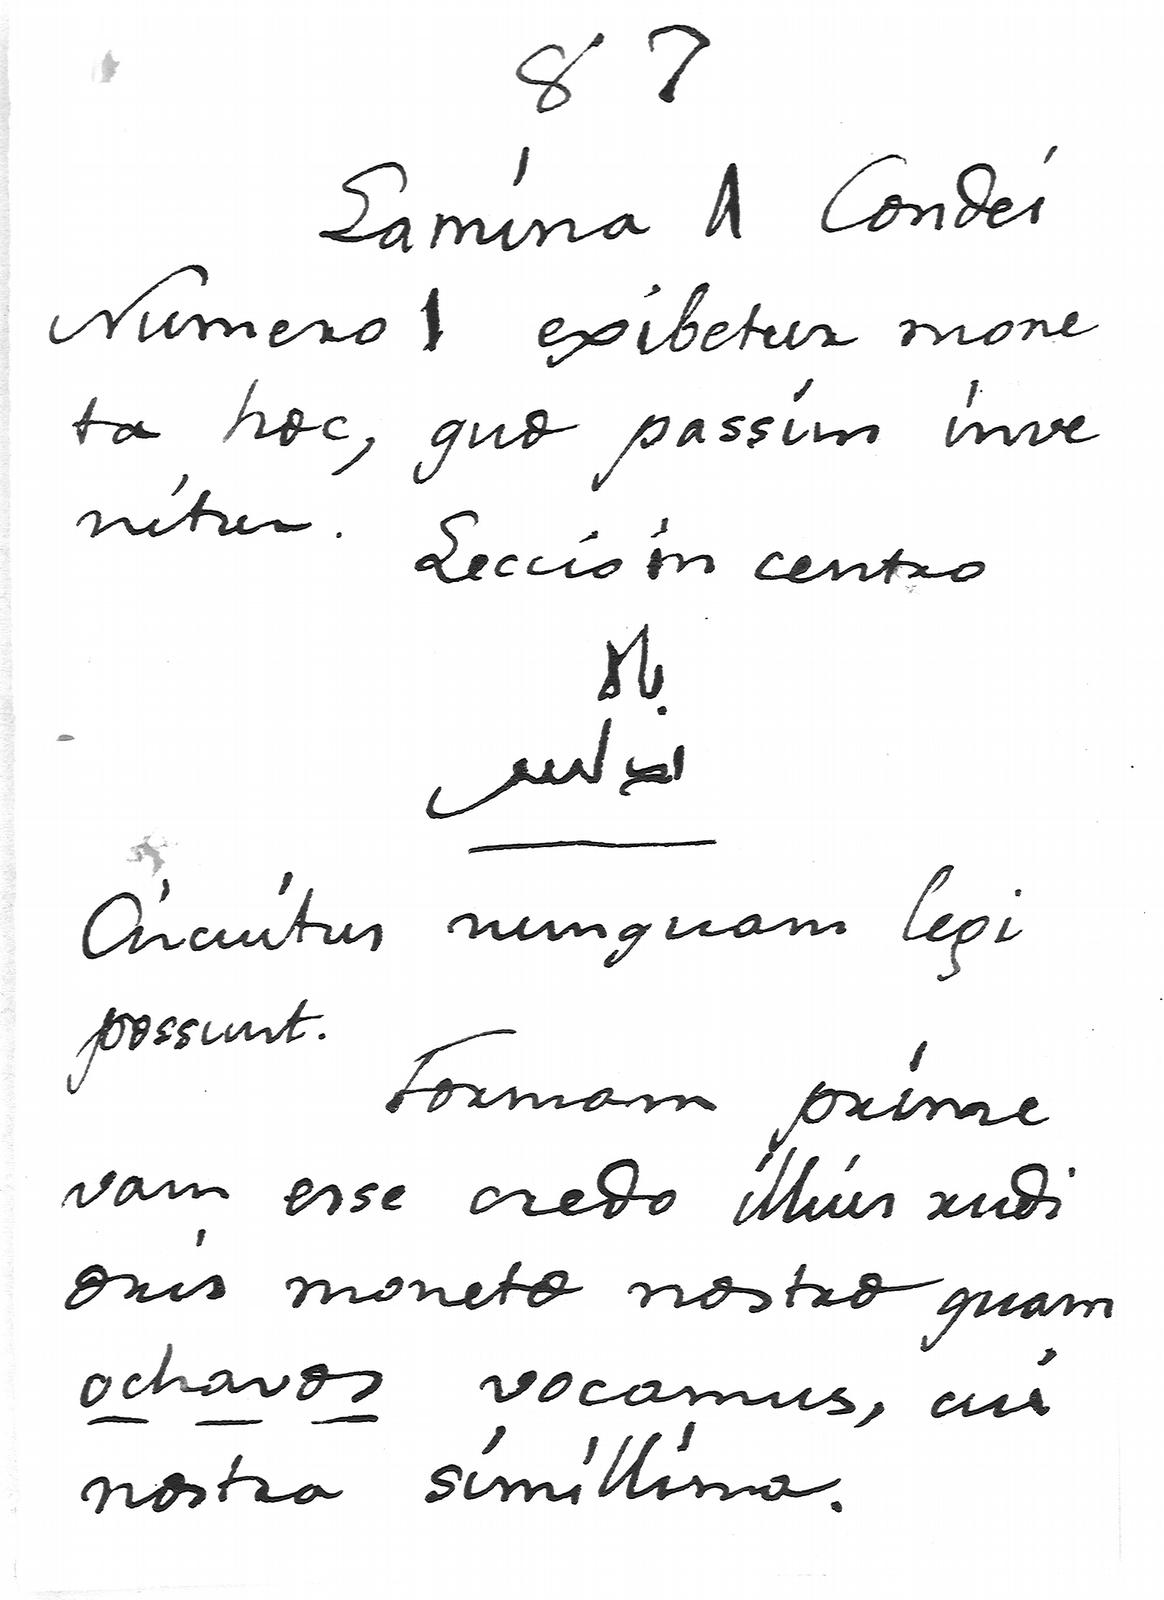 87
Lamina 1 Condei
Numero 1 exibetur mone
ta hoc, quo passim inve
nitur.
Leccio in centro
بالا
ندلس
Circuitus nunquam legi
possunt.
Formam prime
vam esse credo illius rudi
oris moneto nostro quam
ochavos vocamus, cui
nostra simillima.